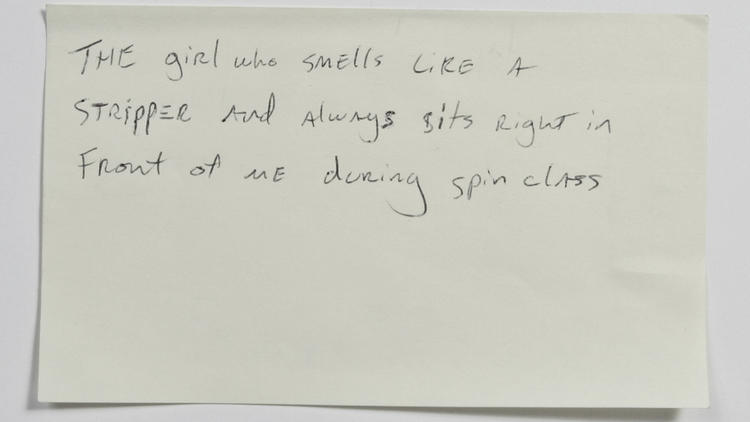 THE girl who smells LIKE A
STRIPPER And Always sits Right in
Front of ME during spin class